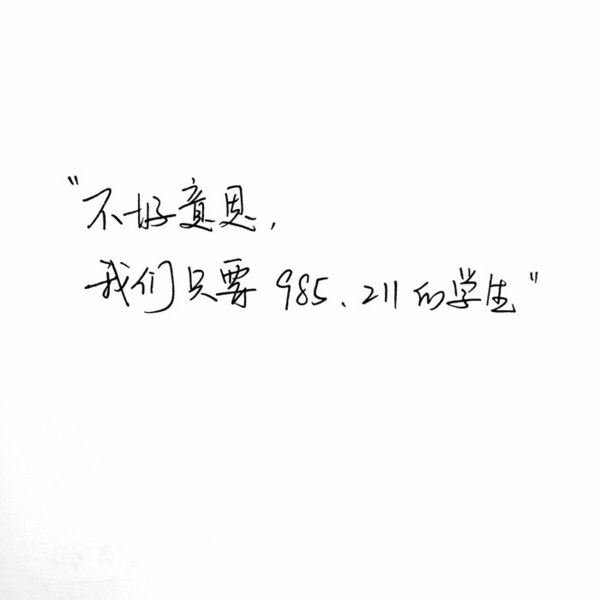 "不好意思,
我们只要985、211的学生"